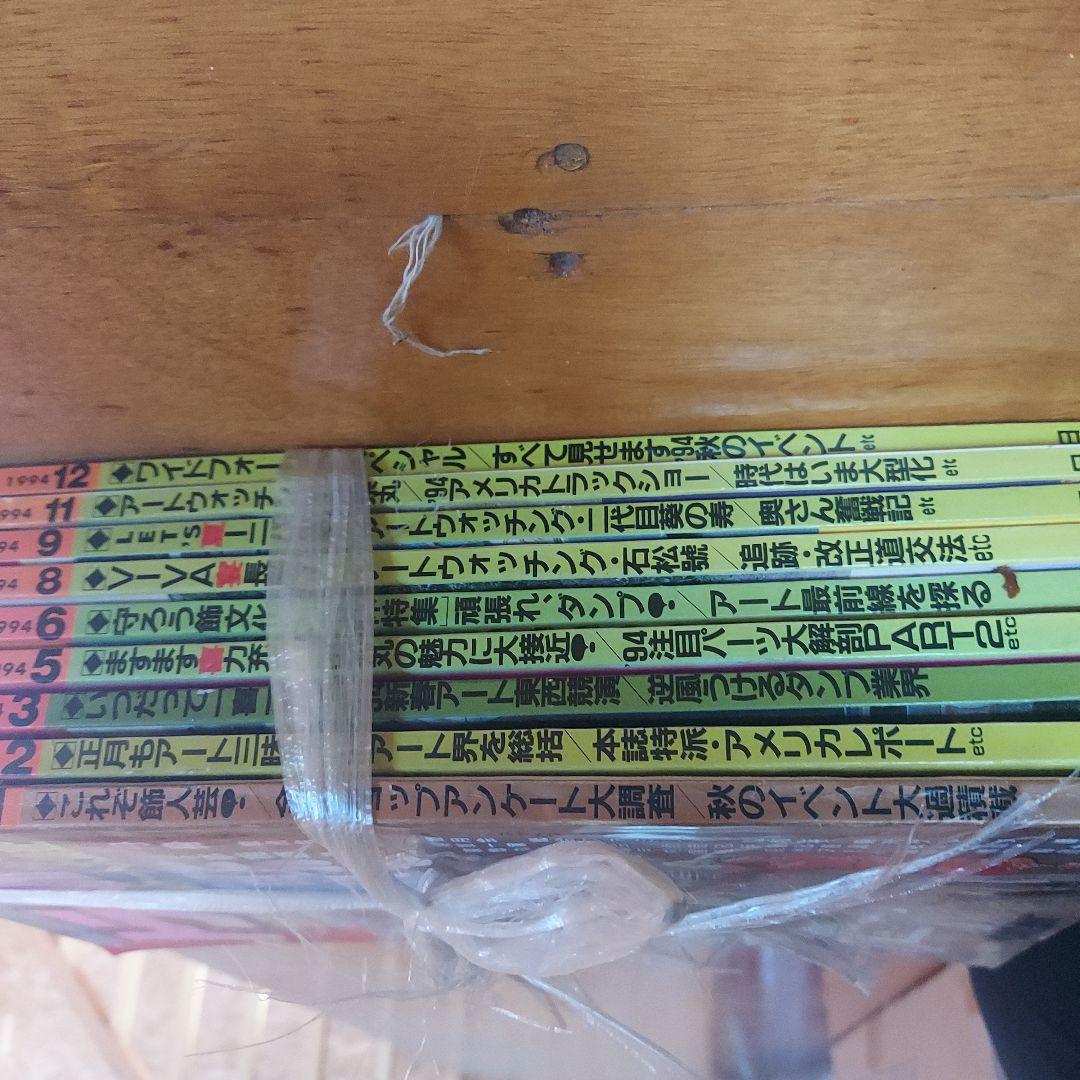 1994 12 ◆ワイドフォー ペシャル/すべて見せます'94秋のイベント etc
1994 11 ◆アートウォッチ 丸/'94アメリカトラックショー/時代はいま大型化 etc
94 9 ◆LET'S ートウォッチング・二代目葵の寿/奥さん奮戦記 etc
94 8 ◆VIVA ートウォッチング・石松號/追跡・改正道交法 etc
1994 6 ◆守ろう飾文化 特集]頑張れ、ダンプ/アート最前線を探る
994 5 ◆ますます 力 丸の魅力に大接近/'94注目パーツ大解剖PART2 etc
3 ◆いつだって一番 新春アート東西競演/逆風うけるダンプ業界
2 ◆正月もアート三昧 アート界を総括/本誌特派・アメリカレポート etc
◆これぞ飾人芸 ップアンケート大調査/秋のイベント大過積載